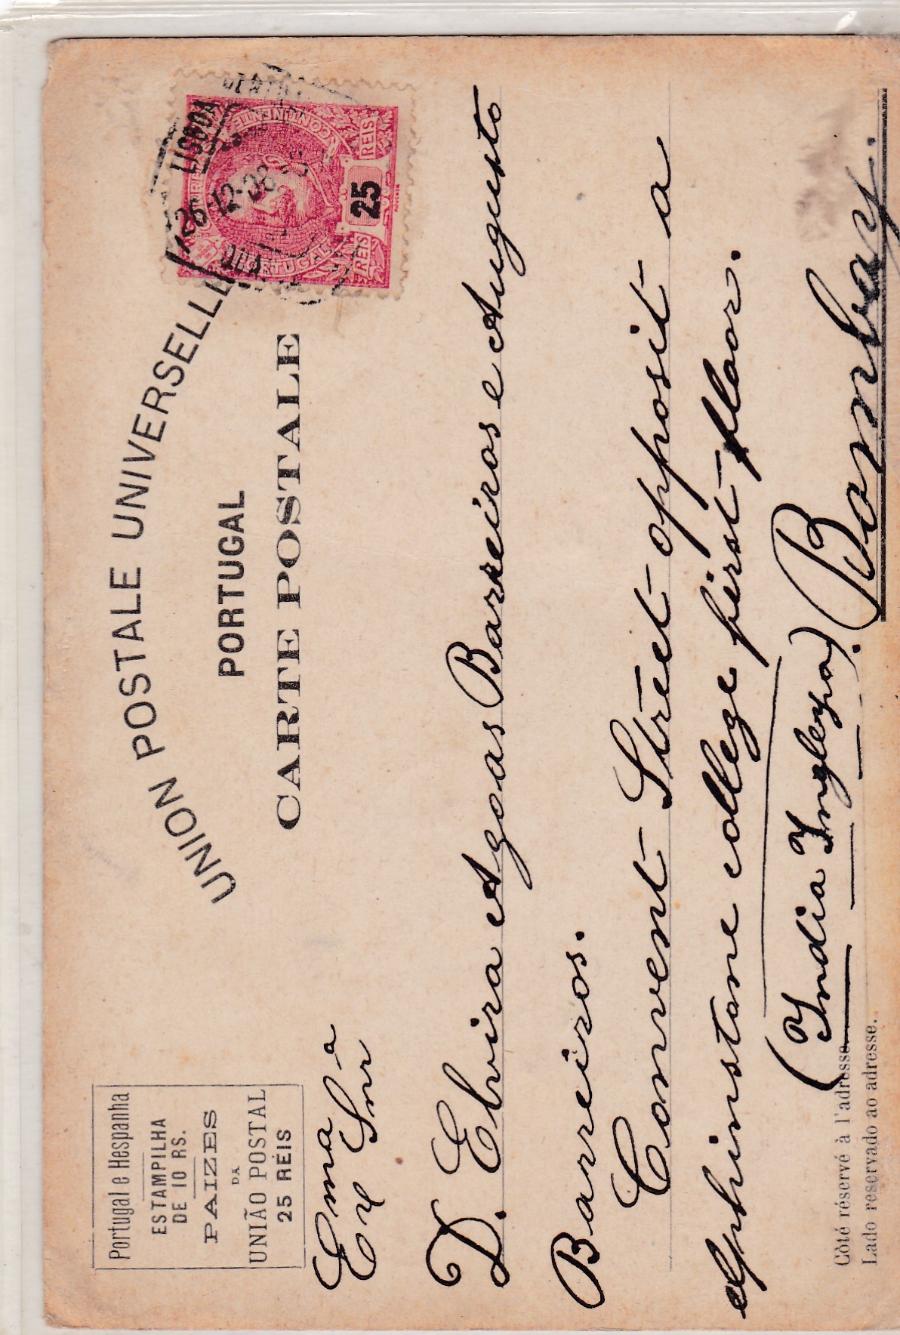 UNION POSTALE UNIVERSELLE
PORTUGAL
CARTE POSTALE
Portugal e Hespanha
ESTAMPILHA
DE 10 RS.
PAIZES
DA
UNIÃO POSTAL
25 RÉIS
CONTINENTE
PORTUGAL
REIS 25 REIS
LISBOA
26-12-08
Exma Snra
D. Elvira Agoas Barreiros e Augusto
Barreiros.
Convent Street opposit a
elphinstone college first floor.
(India Ingleza). Bombay.
Côté réservé à l'adresse.
Lado reservado ao adresse.